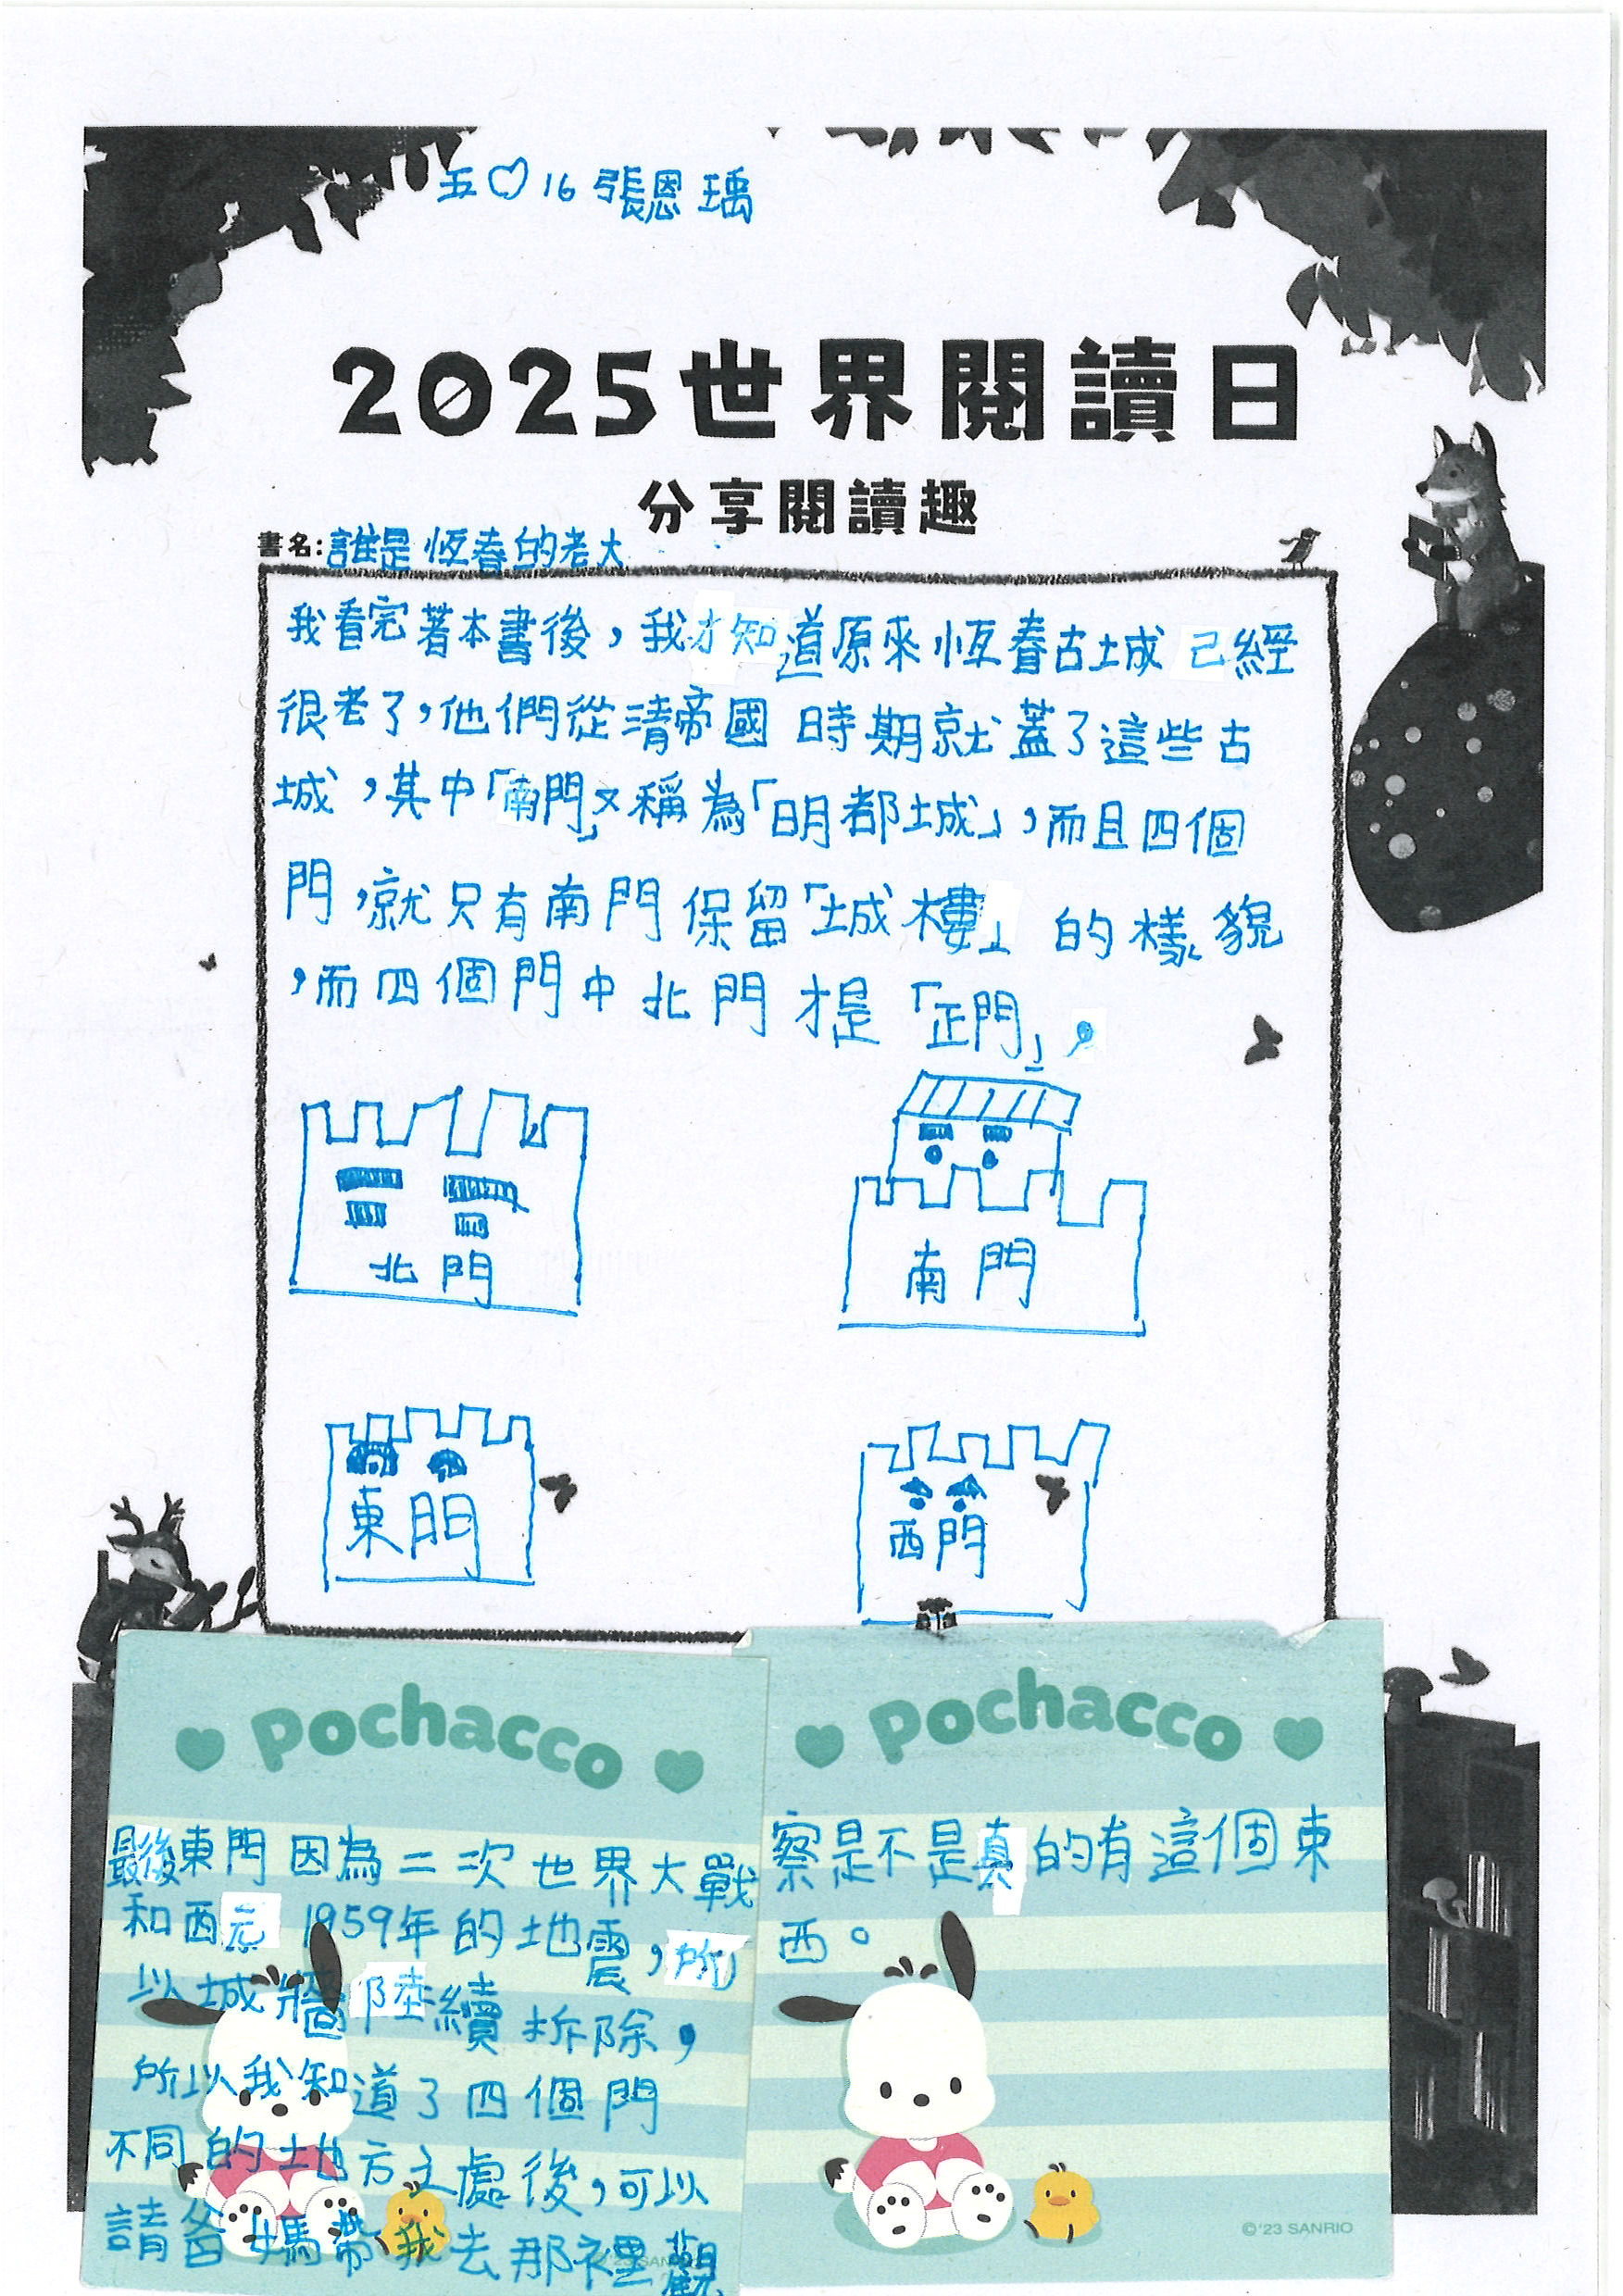 五♡16 張恩瑀
2025世界閱讀日
分享閱讀趣
書名:誰是恆春的老大
我看完著本書後，我才知道原來恆春古城己經
很老了，他們從清帝國時期就蓋了這些古
城，其中「南門」又稱為「明都城」，而且四個
門，就只有南門保留「城樓」的樣貌
，而四個門中北門才是「正門」，
北門
南門
東門
西門
pochacco
最後東門因為二次世界大戰
和西元1959年的地震，所
以城牆陸續拆除，
所以我知道了四個門
不同的地方之處後，可以
請爸媽帶我去那裡觀
pochacco
察是不是真的有這個東
西。
©'23 SANRIO